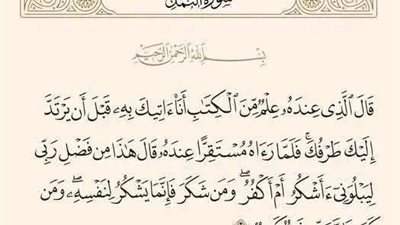 سورة النمل
بِسْمِ اللَّهِ الرَّحْمَٰنِ الرَّحِيمِ
قَالَ ٱلَّذِى عِندَهُۥ عِلْمٌ مِّنَ ٱلْكِتَٰبِ أَنَا۠ ءَاتِيكَ بِهِۦ قَبْلَ أَن يَرْتَدَّ
إِلَيْكَ طَرْفُكَ ۚ فَلَمَّا رَءَاهُ مُسْتَقِرًّا عِندَهُۥ قَالَ هَٰذَا مِن فَضْلِ رَبِّى
لِيَبْلُوَنِىٓ ءَأَشْكُرُ أَمْ أَكْفُرُ ۖ وَمَن شَكَرَ فَإِنَّمَا يَشْكُرُ لِنَفْسِهِۦ ۖ وَمَن